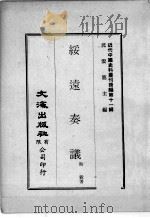 近代中國史料叢刊續編第十一輯
沈雲龍主編
綏遠奏議
貽穀著
文海出版社有限公司印行